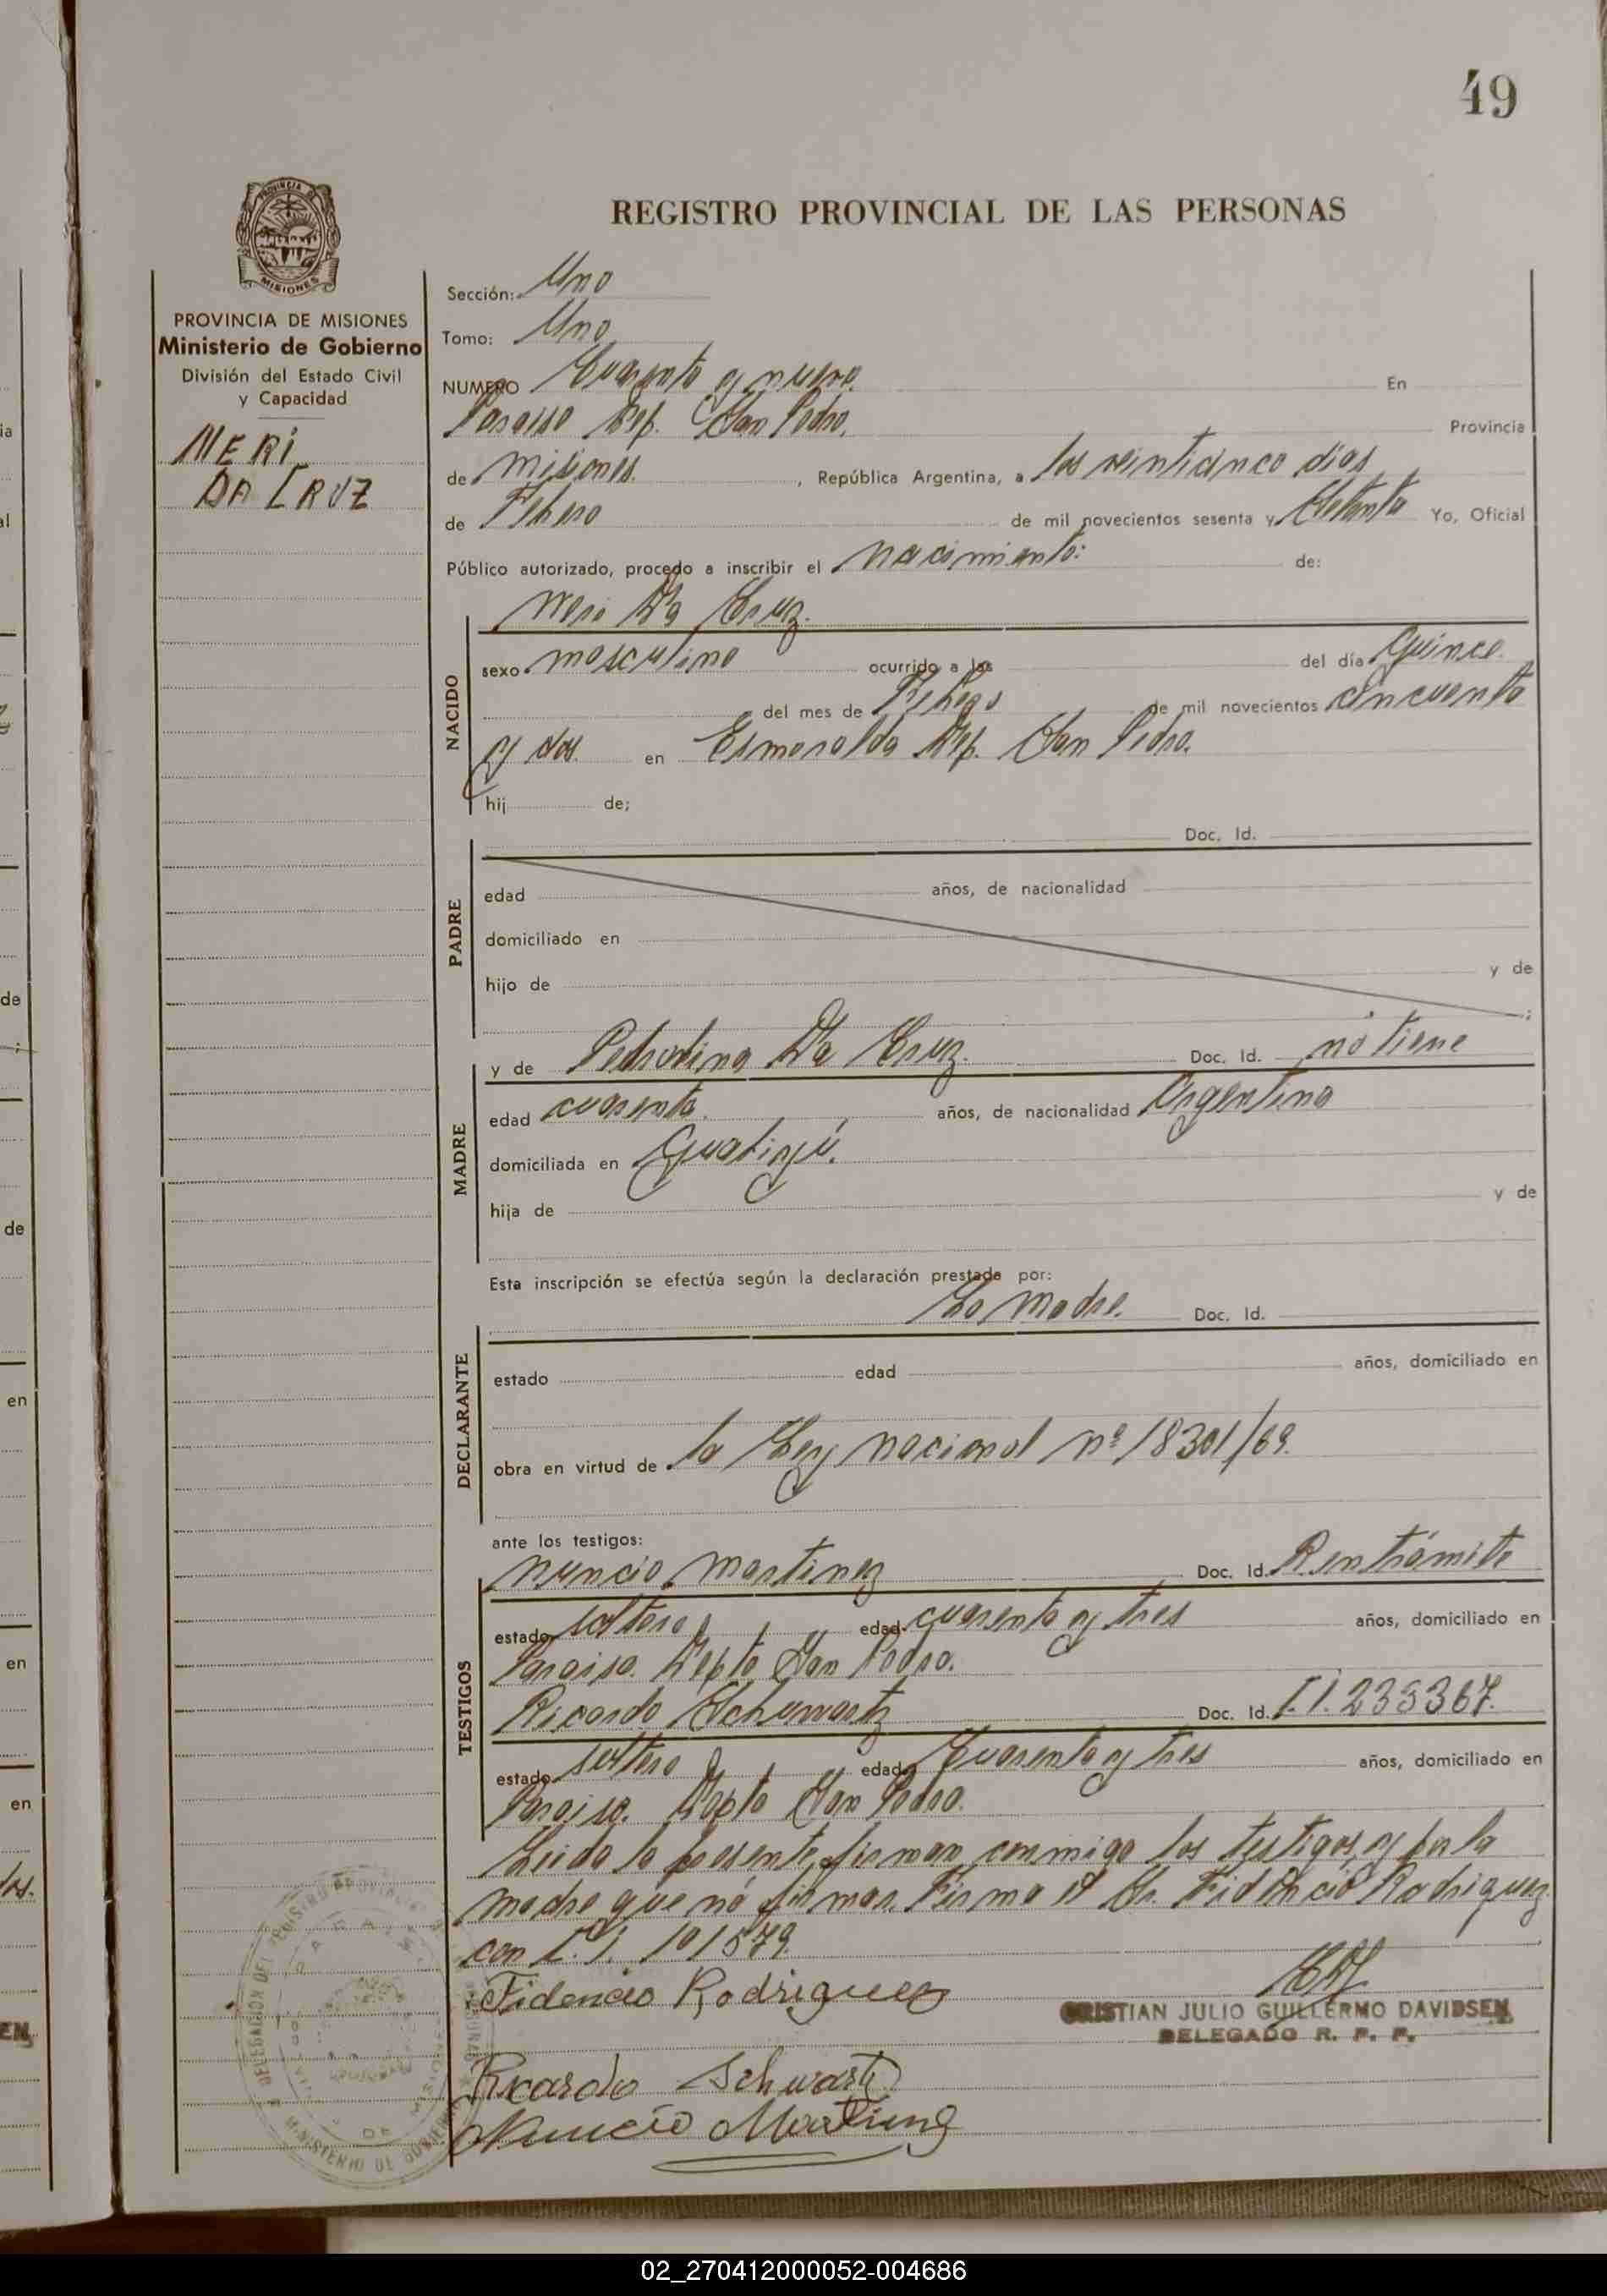 49
REGISTRO PROVINCIAL DE LAS PERSONAS
MISIONES
PROVINCIA DE MISIONES
Ministerio de Gobierno
División del Estado Civil
y Capacidad
MERI
DA CRUZ
Sección: Uno
Tomo: Uno
NUMERO Cuarenta y nueve. En
Paraiso Dep. San Pedro. Provincia
de Misiones. , República Argentina, a los veinticinco días
de Febrero de mil novecientos sesenta y Setenta Yo, Oficial
Público autorizado, procedo a inscribir el nacimiento: de:
Meri Da Cruz.
NACIDO
sexo masculino ocurrido a las del día Quince
del mes de Febrero de mil novecientos cincuenta
y dos. en Esmeralda Dep. San Pedro.
hij de;
PADRE
Doc. Id.
edad años, de nacionalidad
domiciliado en
hijo de y de
;
MADRE
y de Pedrolina Da Cruz. Doc. Id. no tiene
edad cuarenta. años, de nacionalidad Argentina
domiciliada en
hija de y de
Esta inscripción se efectúa según la declaración prestada por:
DECLARANTE
La madre. Doc. Id.
estado edad años, domiciliado en
obra en virtud de la Ley nacional nº 18301/69.
ante los testigos:
TESTIGOS
Nuncio Martinez Doc. Id. R. en trámite
estado soltero edad cuarenta y tres años, domiciliado en
Paraiso. Depto San Pedro.
Ricardo Schuwartz Doc. Id. C.I. 235367.
estado soltero edad Cuarenta y tres años, domiciliado en
Paraiso. Depto San Pedro.
Leida la presente, firman conmigo los testigos y por la
madre que no firmar. Firma el Sr. Fidencio Rodriguez
con C.I. 101579.
Fidencio Rodriguez
CRISTIAN JULIO GUILLERMO DAVIDSEN
DELEGADO R. P. P.
Ricardo Schwartz
Nuncio Martinez
02_270412000052-004686